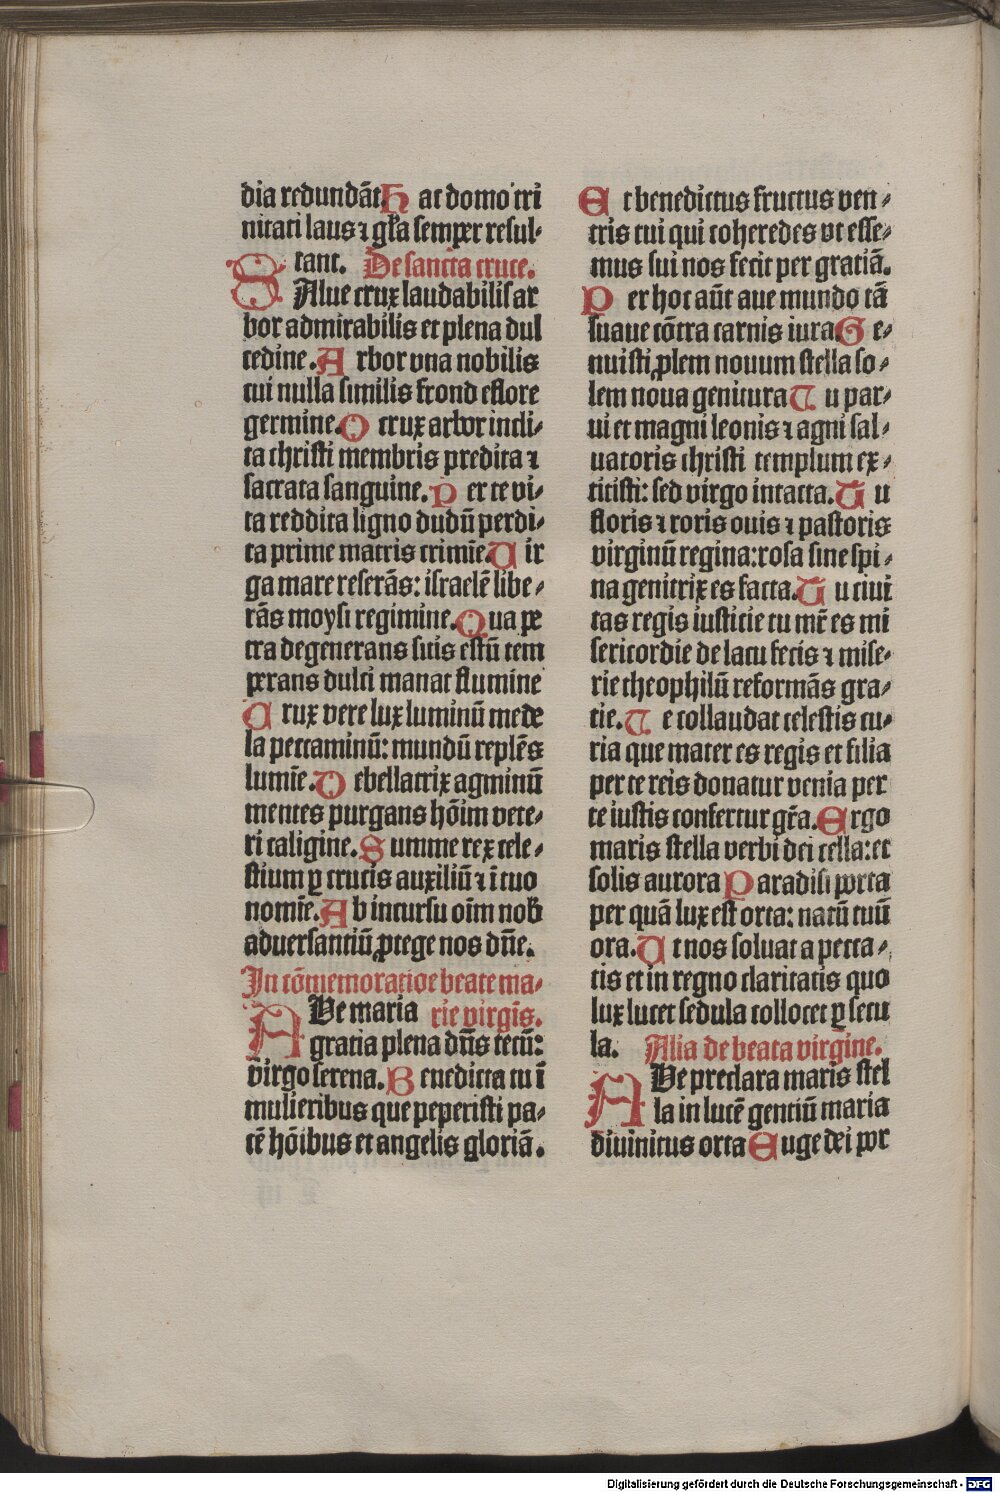 dia redundāt. Hac domo tri
nitati laus ⁊ gl̄a semper resul⸗
tant. De sancta cruce.
SAlue crux laudabilis ar
bor admirabilis et plena dul
cedine. Arbor vna nobilis
cui nulla similis frond eflore
germine. O crux arbor incli⸗
ta christi membris predita ⁊
sacrata sanguine. Per te vi⸗
ta reddita ligno dudū perdi⸗
ta prime matris crimīe. Vir
ga mare reserās: israelē libe⸗
rās moysi regimine. Qua pe
tra degenerans sitis estū tem
perans dulci manat flumine
Crux vere lux luminū mede
la peccaminū: mundū replēs
lumīe. Debellatrix agminū
mentes purgans hōim vete⸗
ri caligine. Summe rex cele⸗
stium ꝑ crucis auxiliū ⁊ ī tuo
nomīe. Ab incursu oīm nob̄
aduersantiū ꝓtege nos dn̄e.
In cōmemoratioe beate ma⸗
AVe maria rie virgīs.
gratia plena dn̄s tecū:
virgo serena. Benedicta tu ī
mulieribus que peperisti pa⸗
cē hōibus et angelis gloriā.
Et benedictus fructus ven⸗
tris tui qui coheredes vt esse⸗
mus sui nos fecit per gratiā.
Per hoc aūt aue mundo tā
suaue cōtra carnis iura. Ge⸗
nuisti ꝓlem nouum stella so⸗
lem noua genitura Tu par⸗
ui et magni leonis ⁊ agni sal⸗
uatoris christi templum ex⸗
titisti: sed virgo intacta. Tu
floris ⁊ roris ouis ⁊ pastoris
virginū regina: rosa sine spi⸗
na genitrix es facta. Tu ciui
tas regis iusticie tu mr̄ es mi
sericordie de lacu fecis ⁊ mise⸗
rie theophilū reformās gra⸗
tie. Te collaudat celestis cu⸗
ria que mater es regis et filia
per te reis donatur venia per
te iustis confertur gr̄a. Ergo
maris stella verbi dei cella: et
solis aurora Paradisi porta
per quā lux est orta: natū tuū
ora. Vt nos soluat a pecca⸗
tis et in regno claritatis quo
lux lucet sedula collocet ꝑ secu
la. Alia de beata virgine.
AVe preclara maris stel
la in lucē gentiū maria
diuinitus orta Euge dei por
Digitalisierung gefördert durch die Deutsche Forschungsgemeinschaft - DFG